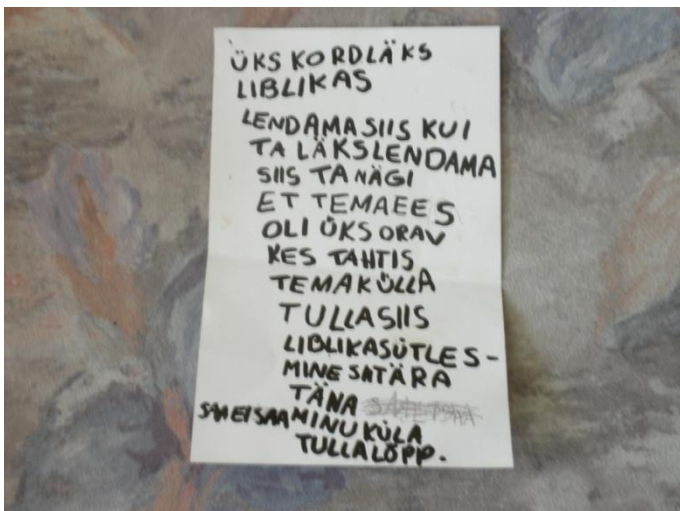 ÜKS KORDLÄKS
LIBLIKAS
LENDAMASIIS KUI
TA LÄKSLENDAMA
SIIS TA NÄGI
ET TEMAEES
OLI ÜKS ORAV
KES TAHTIS
TEMAKÜLLA
TULLASIIS
LIBLIKASÜTLES-
MINE SIITÄRA
TÄNA
SAAEISAAMINUKÜLA
TULLALÕPP.